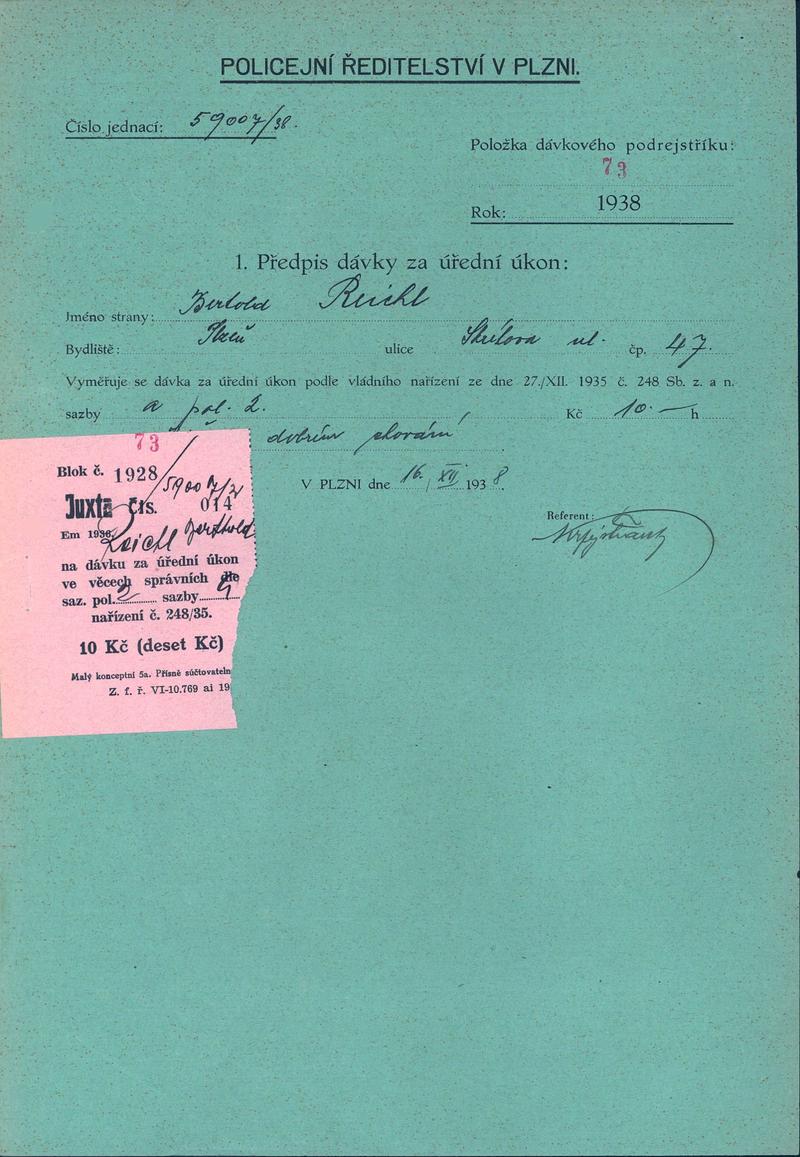 POLICEJNÍ ŘEDITELSTVÍ V PLZNI.
Číslo jednací: 59007/38.
Položka dávkového podrejstříku:
73
Rok: 1938
1. Předpis dávky za úřední úkon:
Jméno strany: Bertold Reichl
Bydliště: Plzeň ulice čp. 47.
Vyměřuje se dávka za úřední úkon podle vládního nařízení ze dne 27./XII. 1935 č. 248 Sb. z. a n.
sazby a pol. 2. Kč 10.— h
dobrém chování
V PLZNI dne 16./XII. 1938
Referent:
73
Blok č. 1928 / 59007/2
Juxta čís. 014
Em 1936
Reichl Berthold
na dávku za úřední úkon
ve věcech správních dle
saz. pol. 2 sazby
nařízení č. 248/35.
10 Kč (deset Kč)
Malý konceptní 5a. Přísně súčtovateln
Z. f. ř. VI-10.769 ai 19